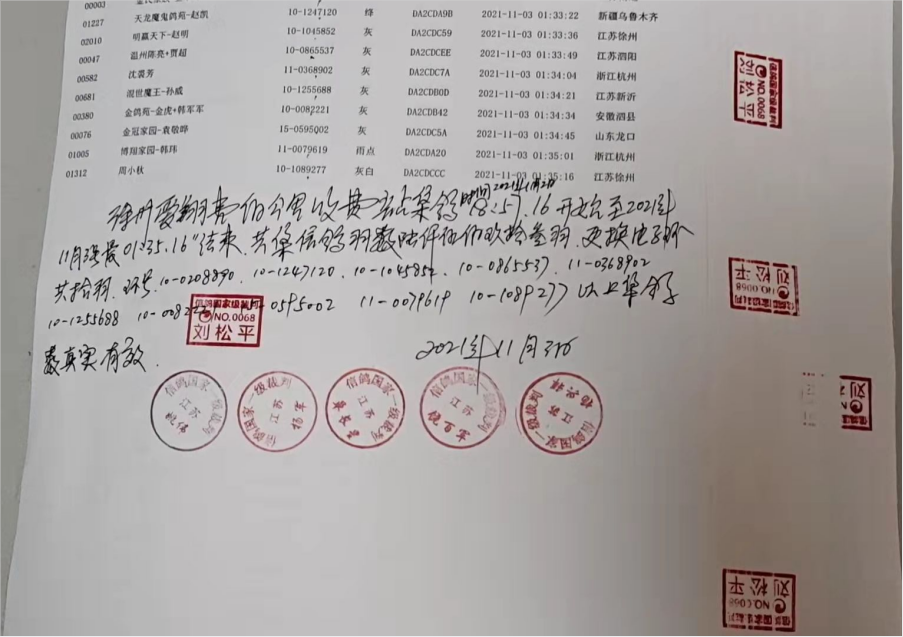 00003
01227 天龙魔鬼鸽苑-赵凯 10-1247120 绛 DA2CDA9B 2021-11-03 01:33:22 新疆乌鲁木齐
02010 明赢天下-赵明 10-1045852 灰 DA2CDC59 2021-11-03 01:33:36 江苏徐州
00047 温州陈亮+贾超 10-0865537 灰 DA2CDCEE 2021-11-03 01:33:49 江苏泗阳
00582 沈裘芳 11-0368902 灰 DA2CDC7A 2021-11-03 01:34:04 浙江杭州
00681 混世魔王-孙威 10-1255688 灰 DA2CDB0D 2021-11-03 01:34:21 江苏新沂
00380 金鸽苑-金虎+韩军军 10-0082221 灰 DA2CDB42 2021-11-03 01:34:34 安徽泗县
00076 金冠家园-袁敬晔 15-0595002 灰 DA2CDC5A 2021-11-03 01:34:45 山东龙口
01005 博翔家园-韩玮 11-0079619 雨点 DA2CDA20 2021-11-03 01:35:01 浙江杭州
01312 周小秋 10-1089277 灰白 DA2CDCCC 2021-11-03 01:35:16 江苏徐州
公里 集鸽时间2021年11月2日 18:57.16开始至2021年
11月3 01:35.16"结束.共集信鸽羽数陆仟 佰玖拾叁羽.更换电子环
共拾羽.环号.10-0208890、10-1247120、10-1045852、10-0865537、11-0368902
10-1255688 10-0082 0595002 11-0079619 10-1089277 以上集鸽
数真实有效.
2021年11月3日
信鸽国家级裁判
NO.0068
刘松平
信鸽国家一级裁判 江苏
信鸽国家一级裁判 江苏
信鸽国家一级裁判 江苏
信鸽国家一级裁判 江苏
信鸽国家一级裁判
信鸽国家级裁判 NO.0068 刘松平
信鸽国家级裁判 NO.0068 刘松平
刘
信鸽国家级裁判 NO.0068 刘松平